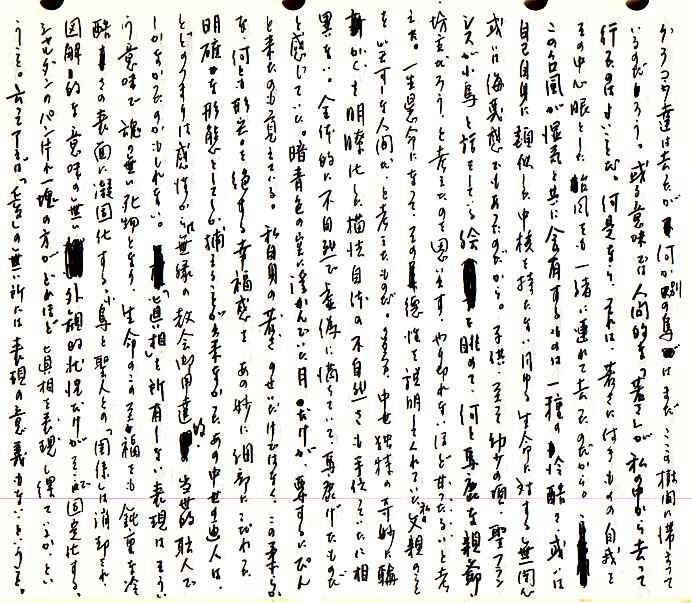 達は去ったが何か別の鳥がまだこの樹間に漂よって
いるのだろう。或る意味では人間的な「若さ」が私の中から去って
行ったのはよいことだ。何故なら、それは若さにつきものの自我を
その中心眼とした颱風をも一緒に連れて去ったのだから。
この台風が湿気と共に含有するものは一種の冷酷さ或いは
自己自身に類似した中核を持たないあらゆる生命に対する無関心
或いは でもあったのだから。子供、至って幼少の頃、聖フラン
シスが小鳥と話をしている絵を眺めて、何と馬鹿な親爺
坊主だろう、と考えたのを思い出す、やり切れないほど甘ったるいと考
えた。一生懸命になって、その徳性を説明してくれていた私の父親のこと
人間だ、と考えたものだ。中世独特の奇妙に輪
明瞭化した描法自体の不自然さも手伝っていたに相
異ない。全体的に不自然で虚偽に満ちていて馬鹿げたものだ
と感じていた。暗青色の空に浮かんでいた月だけが、 ぴん
と来たのも覚えている。私自身の若さのせいだけではなく、この柔らか
な、何とも形容を絶する幸福感を、あの妙に細部にこだわった
明確な形態としてしか捕えることが出来なかった、あの中世の画人は、
とどのつまりは感性から無縁の教会御用達的、当世的職人で
しかなかったのかもしれない。「真相」を所有しない表現はそうい
う意味で魂の無い死物となり、生命のこの至福をも鈍重な冷
酷さの表面に凝固化する。小鳥と聖人との「関係」は消却され、
図解的な意味の無い外観的状況だけがそこに固定化する。
シャルダンのパン一塊の方がどれほど真相を表現し得ているかとい
うこと。「愛」の無い所には表現の意義もないということ。